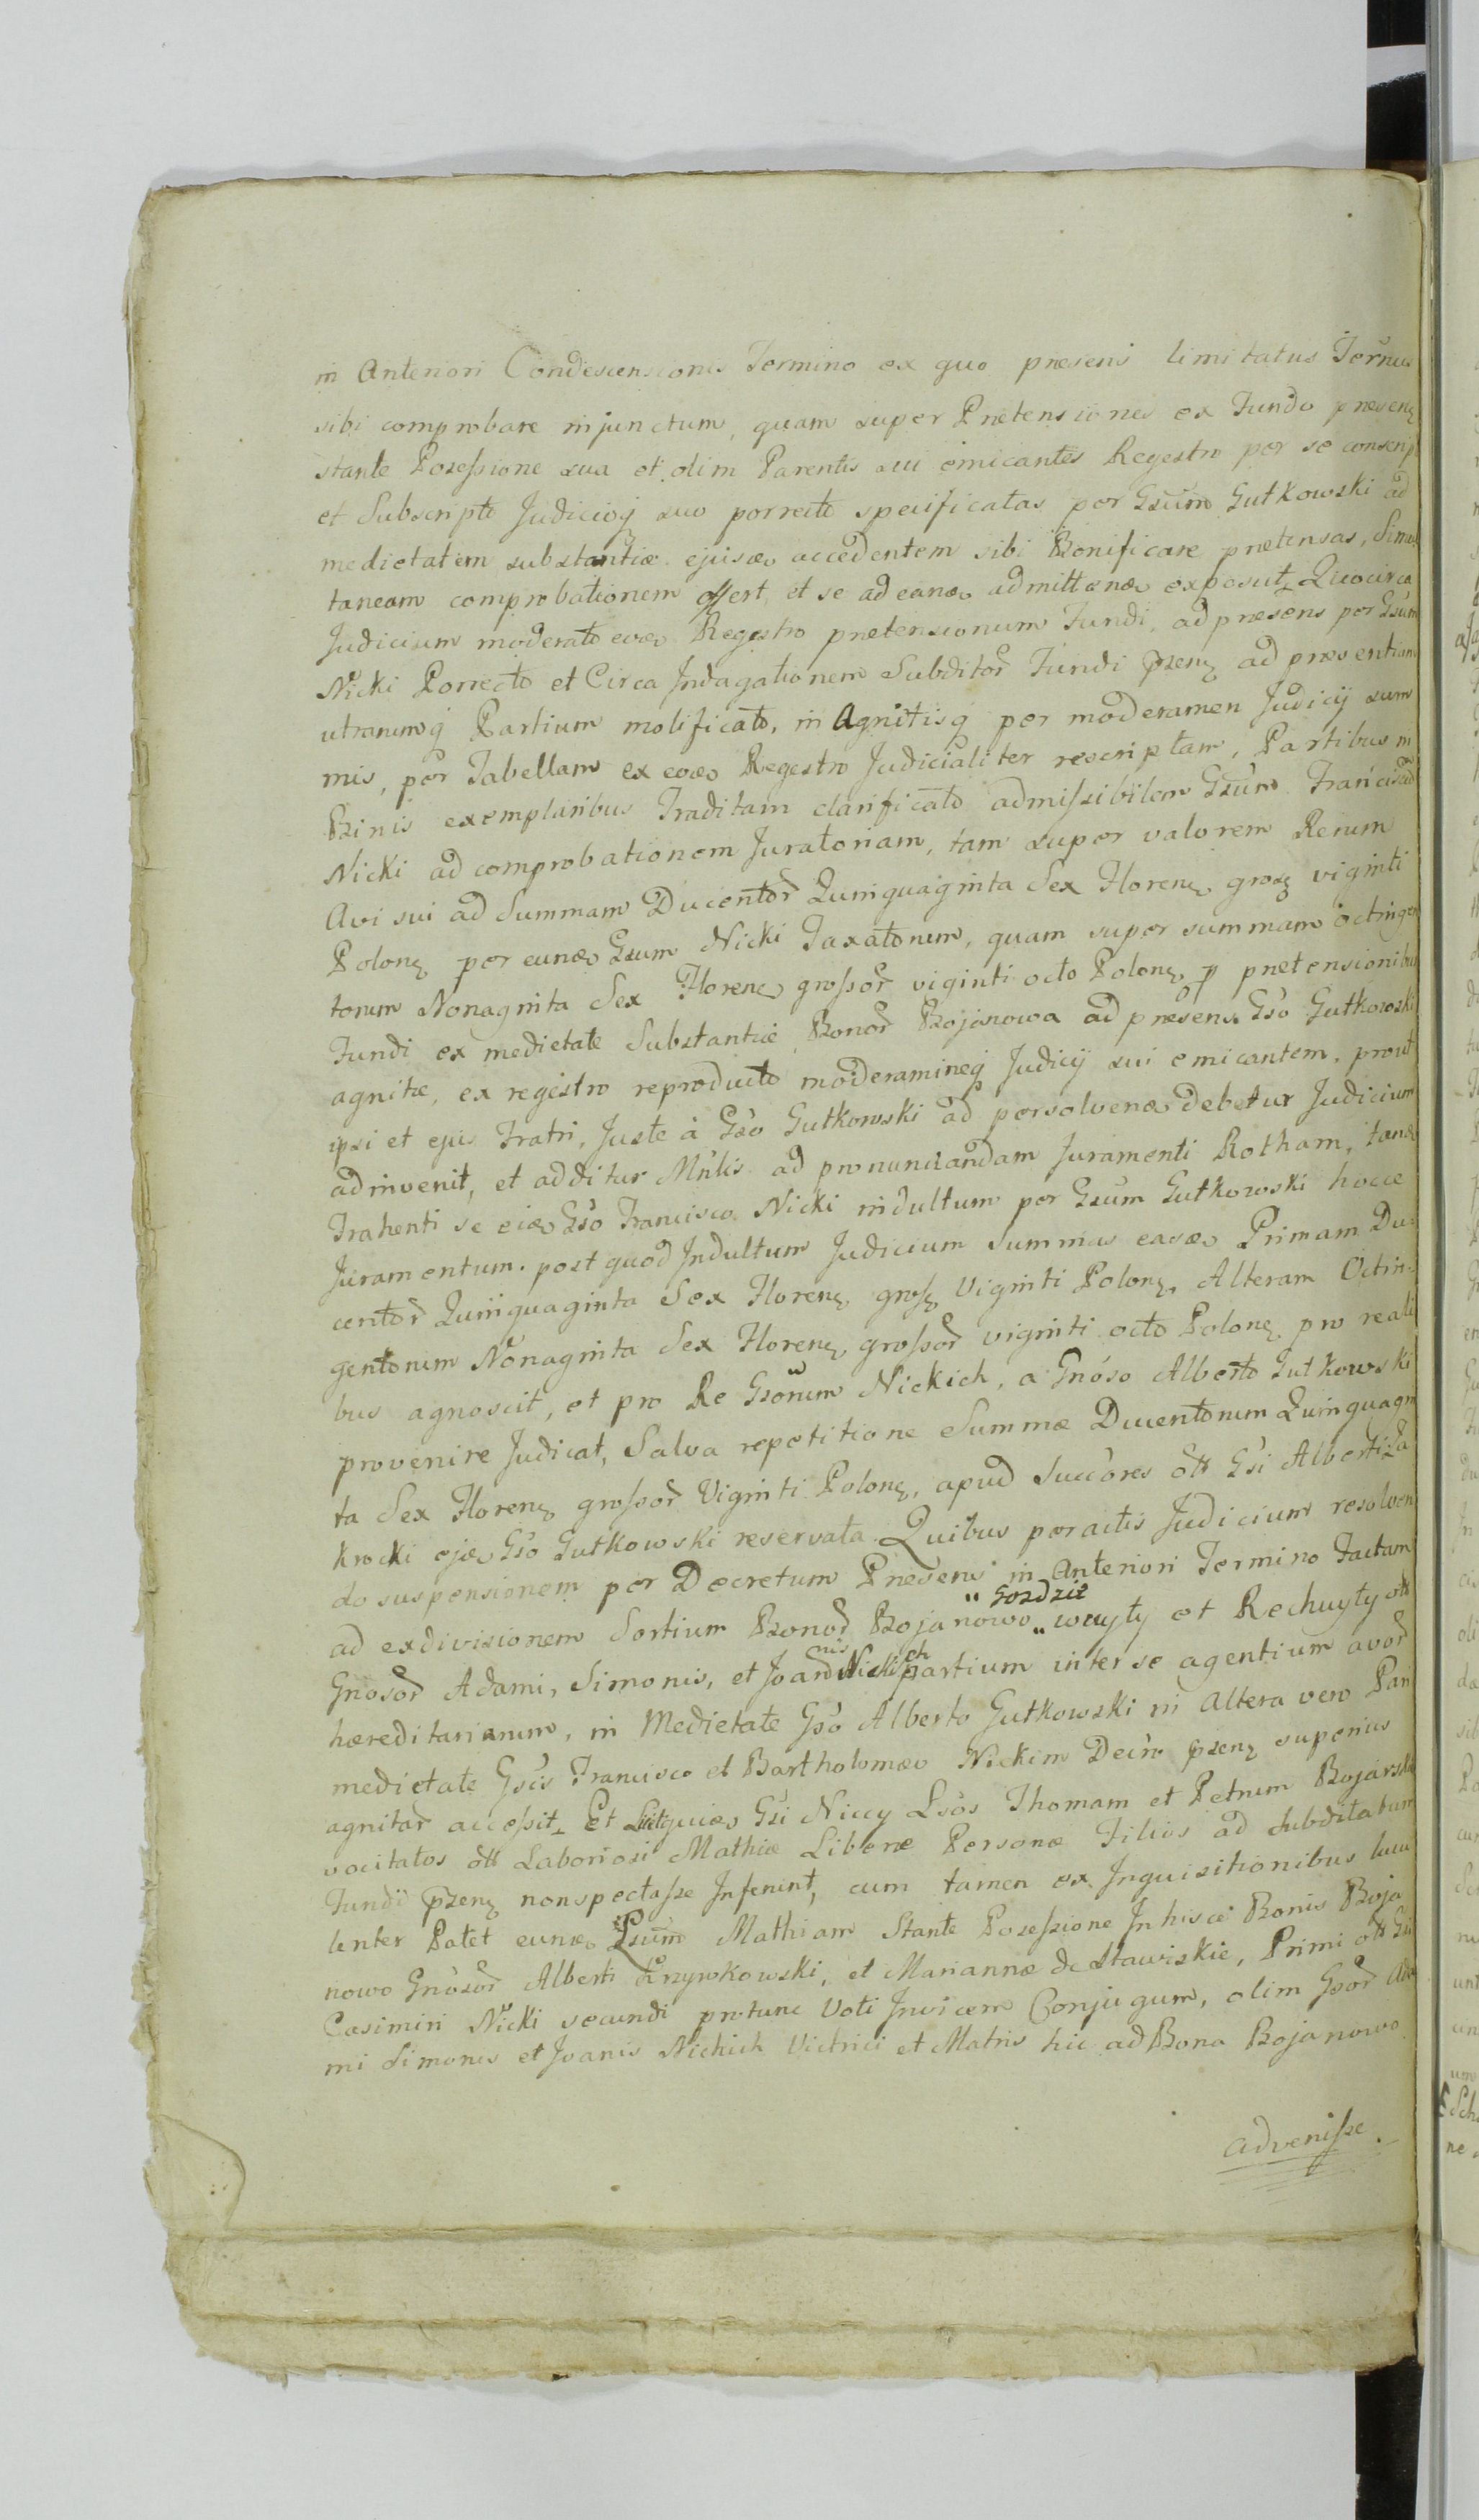 in Anteriori Condescensionis Termino ex quo præsens limitatus Terñus
sibi comprobare injunctum, quam super Prætensiones ex Fundo præsenz
stante Poseſsione sua et olim Parentis sui emicantes Regestro per se conscrip
et Subscripto Judicioq̃ suo porrecto specificatas per Gsũm Gutkowski ad
medietatem substantiæ ejusæ accedentem sibi Bonificare prætensas, Simul
taneam comprobationem offert, et se ad eanæ admittenæ exposuit. Quocirca
Judicium moderato eoæ Regestro prætensionum Fundi, ad præsens per Gsũm
Nicki Porrecto et Circa Indagationem Subditor̃ Fundi p̃senz ad præsentiam
utrarumq̃ Partium molificato, in Agnitisq̃ per moderamen Judicij sum
mis, per Tabellam ex eoæ Regestro Judicialiter rescriptam, Partibus in
Binis exemplaribus Traditam clarificato admiſsibilem Gsũm Franciscũ
Nicki ad comprobationem Juratoriam, tam super valorem Rerum
Avi sui ad Summam Ducentor̃ Quinquaginta Sex Florenz grosz viginti
Polonz per eunæ Gsum Nicki Taxatorum, quam super summam octingen
torum Nonaginta Sex Florenz groſsor̃ viginti octo Polonz p̃ prætensionibus
Fundi ex medietate Substantiæ Bonor̃ Bojanowa ad præsens Gso Gutkowski
agnitæ, ex regestro reproducto moderamineq̃ Judicij sui emicantem, prout
ipsi et ejus Fratri, Juste à Gso Gutkowski ad persolvenæ debetur Judicium
adinvenit, et additur Mñlis ad pronunciandam Juramenti Rotham, tanæ
Trahenti se eiæ Gso Francisco Nicki indultum per Gsum Gutkowski hocce
Juramentum. post quod Indultum Judicium Summas easæ Primam Du-
centor̃ Quinquaginta Sex Florenz grosz Viginti Polonz, Alteram Octin-
gentorum Nonaginta Sex Florenz groſsor̃ viginti octo Polonz pro reali
bus agnoscit, et pro Re Gsorum Nickich, a Gnoso Alberto Gutkowski
provenire Judicat, Salva repetitione Summæ Ducentorum Quinquagin
ta Sex Florenz groſsor̃ Viginti Polonz, apud Succ̃ores ol̃i Gsi Alberti Za
krocki ejæ Gso Gutkowski reservata. Quibus peractis Judicium resolven
do suspensionem per Decretum Præsens in Anteriori Termino Factam
ad exdivisionem Sortium Bonor̃ Bojanowo " Gozdzie " wayty et Rechuyty
Gnosor̃ Adami, Simonis, et Joannis Nickich partium inter se agentium avor̃
hæreditariarum, in Medietate Gso Alberto Gutkowski in Altera vero Pari
medietate Gsis Francisco et Bartholomæo Nickim Decr̃o p̃senz superius
agnitar̃ acceſsit. Et Licet quiæ Gsi Niccy Lsos Thomam et Petrum Bojarskie
vocitatos Laboriosi Mathiæ Liberæ Personæ Filios ad subditatum
Fundi p̃senz non spectaſse Inferunt, cum tamen ex Inquisitionibus lucu
lenter Patet eunæ Lsũm Mathiam Stante Poseſsione In hisce Bonis Boja
nowo Gnosor̃ Alberti Krzywkowski, et Mariannæ de Stawiskie, Primi Gsi
Casimiri Nicki secundi protunc Voti Invicem Conjugum, olim Gsor̃ Ada
mi Simonis et Joanis Nickich Victrici et Matris hic ad Bona Bojanowo
adveniſse.